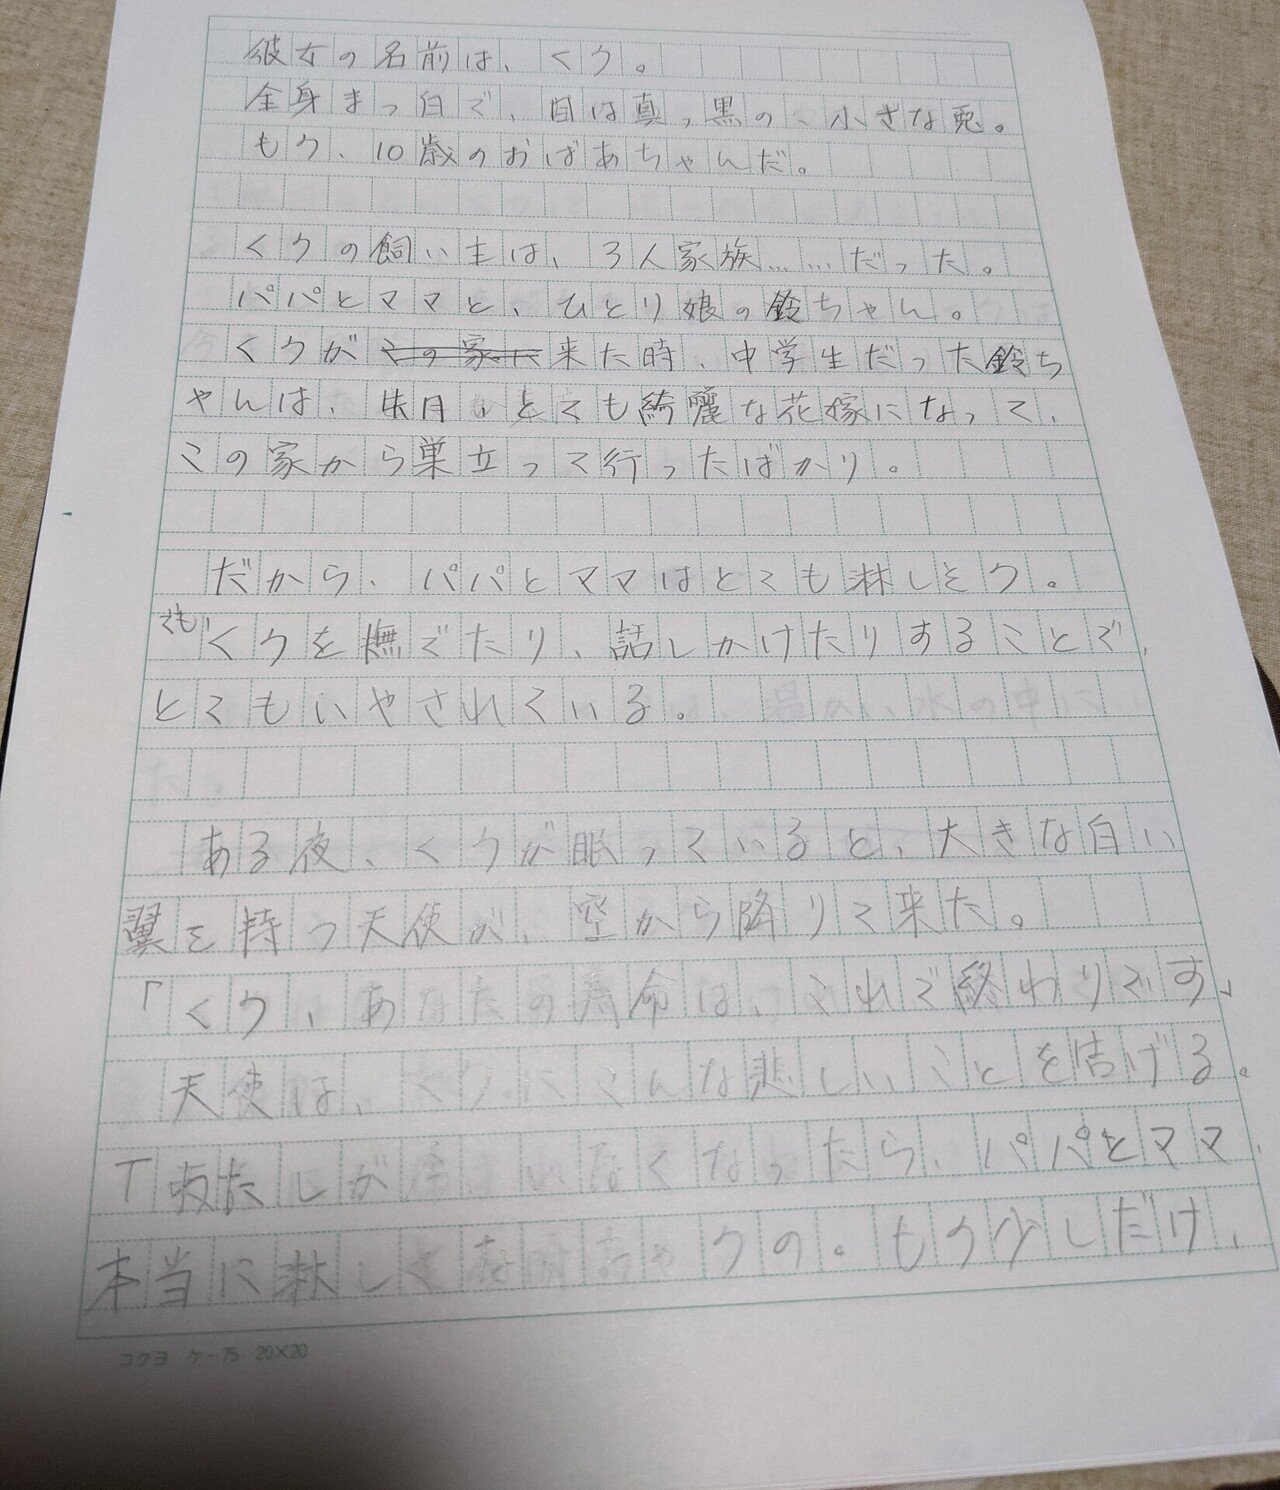 彼女の名前は、くう。
全身まっ白で、目は真っ黒の、小さな兎。
もう、10歳のおばあちゃんだ。
くうの飼い主は、3人家族……だった。
パパとママと、ひとり娘の鈴ちゃん。
くうがこの家に来た時、中学生だった鈴ち
ゃんは、先月、とても綺麗な花嫁になって、
この家から巣立って行ったばかり。
だから、パパとママはとても淋しそう。
でも、くうを撫でたり、話しかけたりすることで、
とてもいやされている。
ある夜、くうが眠っていると、大きな白い
翼を持つ天使が、空から降りて来た。
「くう、あなたの寿命は、これで終わりです」
天使は、くうにこんな悲しいことを告げる。
「わたしがいなくなったら、パパとママ、
本当に淋しくなっちゃうの。もう少しだけ、
コクヨ ケ-75 20×20